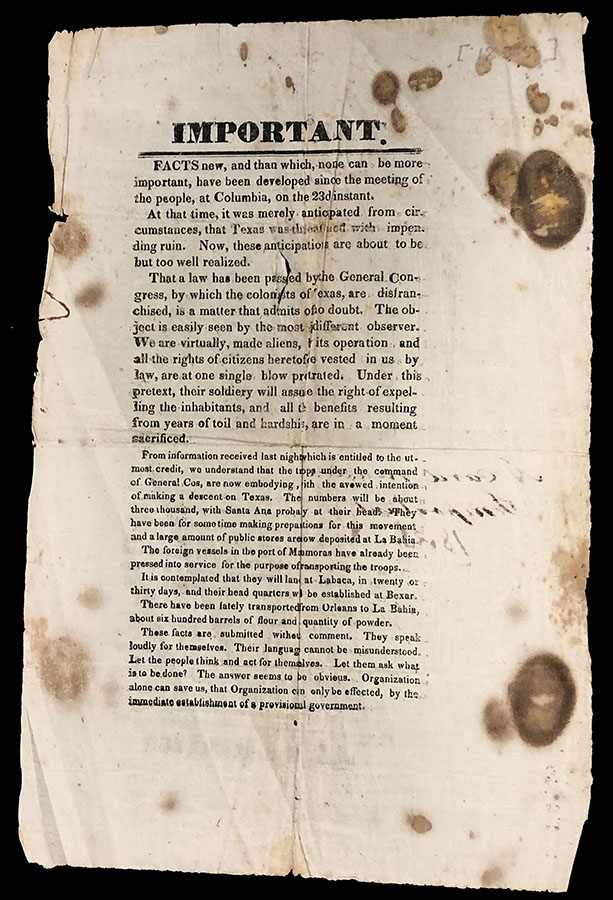 [ 1835 ]
IMPORTANT.
FACTS new, and than which, none can be more
important, have been developed since the meeting of
the people, at Columbia, on the 23d instant.
At that time, it was merely anticpated from cir-
cumstances, that Texas was threatned with impen-
ding ruin. Now, these anticipations are about to be
but too well realized.
That a law has been passed by the General Con-
gress, by which the colonists of Texas, are disfran-
chised, is a matter that admits of no doubt. The ob-
ject is easily seen by the most different observer.
We are virtually, made aliens, its operation and
all the rights of citizens heretofore vested in us by
law, are at one single blow. Under this
pretext, their soldiery will assue the right of expel-
ling the inhabitants, and all the benefits resulting
from years of toil and hardship, are in a moment
sacrificed.
From information received last night which is entitled to the ut-
most credit, we understand that the under the command
of General Cos, are now embodying, with the avowed intention
of making a descent on Texas. The numbers will be about
three thousand, with Santa Ana at their head. They
have been for some time making preparations for this movement
and a large amount of public stores are now deposited at La Bahia.
The foreign vessels in the port of have already been
pressed into service for the purpose of transporting the troops.
It is contemplated that they will land at Labaca, in twenty or
thirty days, and their head quarters will be established at Bexar.
There have been lately transported from Orleans to La Bahia,
about six hundred barrels of flour and quantity of powder.
These facts are, submitted without comment. They speak
loudly for themselves. Their language cannot be misunderstood.
Let the people think and act for themselves. Let them ask what
is to be done? The answer seems to be obvious. Organization
alone can save us, that Organization can only be effected, by the
immediate establishment of a provisional government.